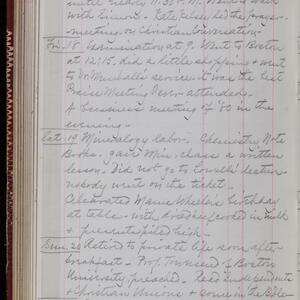 until nearly
with Simon. - Kate led the prayer-
meeting, on Christian Conversation -
Fri. 18. Examination at 9. Went to Boston
at 12:15, did a little shopping & went
to Dr. service. It was the best
Praise Meeting I ever attended.
A business meeting of '80 in the
evening -
Sat. 19. Mineralogy labor. Chemistry Note
Books. gave Miss a written
lesson. Did not go to lecture
nobody went on the ticket -
Celebrated Mamie Wheeler's birthday
at table - with cooked in milk
& presents piled high -
Sun. 20 Retired to private life soon after
breakfast - Prof. Townsend of Boston
University preached.
& Christian Unions & some in the Bible